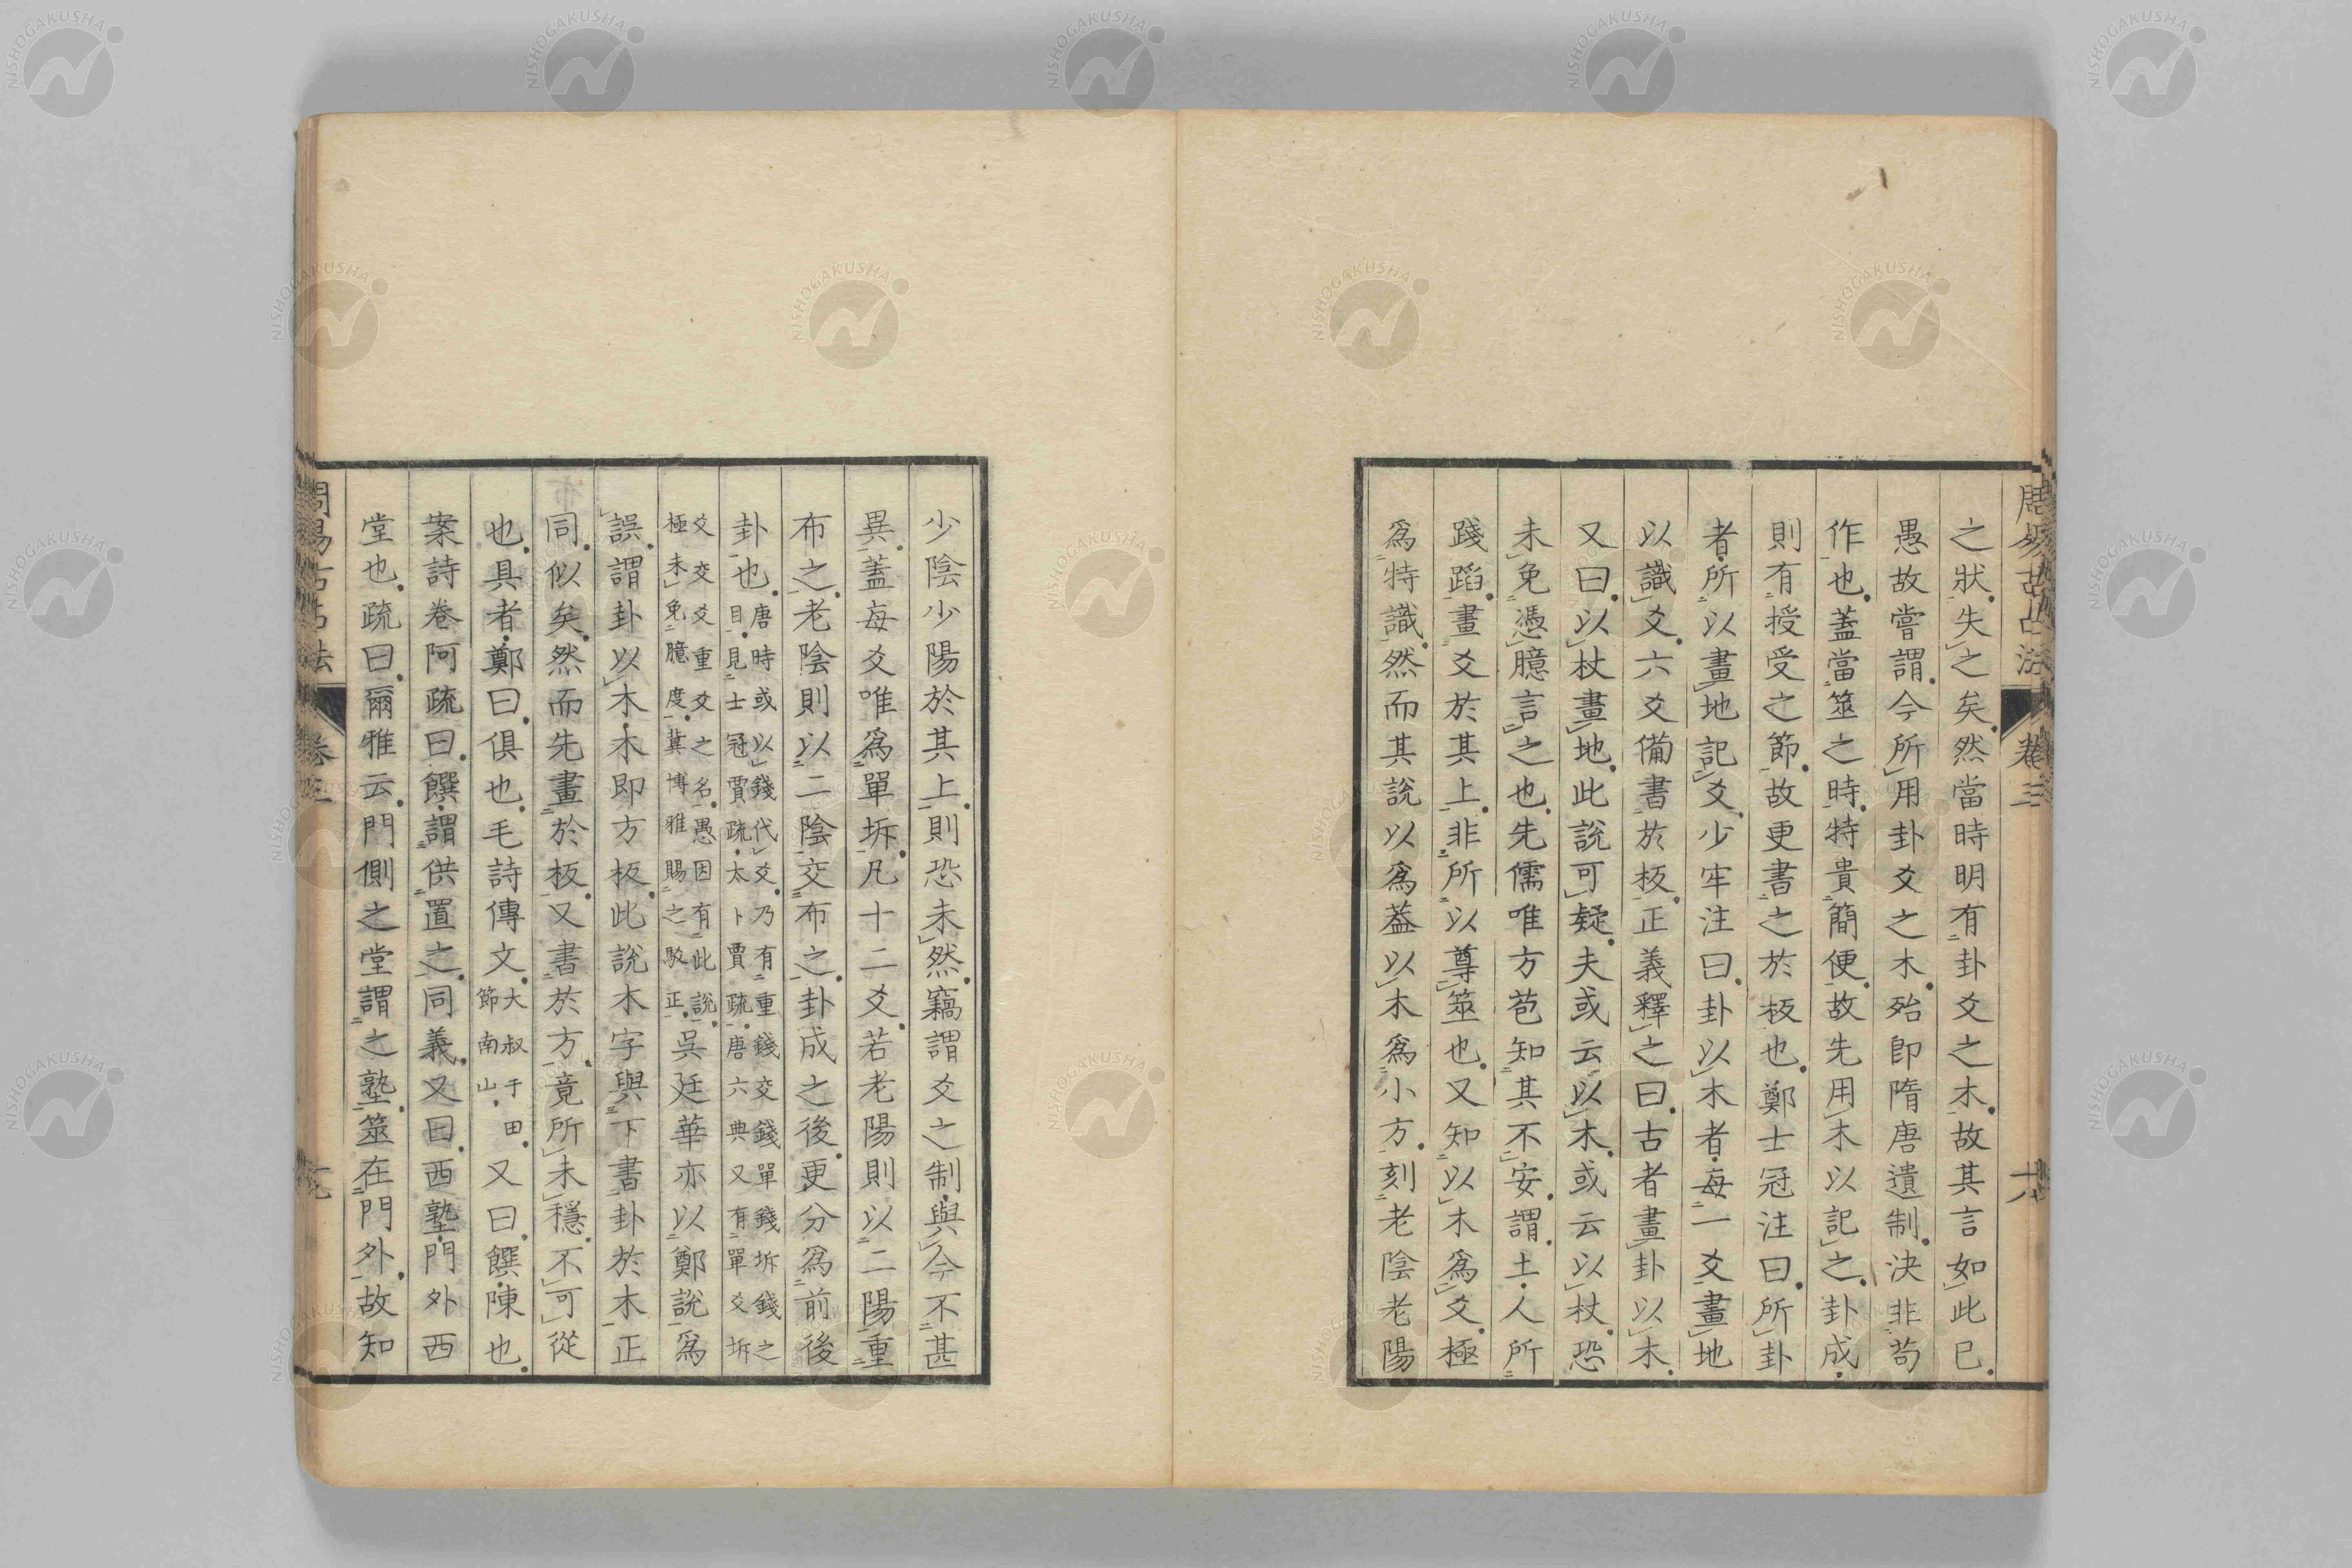 周易古占法 卷三 十六
之狀失之矣然當時明有卦爻之木故其言如此已
愚故嘗謂今所用卦爻之木殆卽隋唐遺制決非苟
作也蓋當筮之時特貴簡便故先用木以記之卦成
則有授受之節故更書之於板也鄭士冠注曰所卦
者所以畫地記爻少牢注曰卦以木者每一爻畫地
以識爻六爻備書於板正義釋之曰古者畫卦以木
又曰以杖畫地此說可疑夫或云以木或云以杖恐
未免憑臆言之也先儒唯方苞知其不安謂土人所
踐蹈畫爻於其上非所以尊筮也又知以木爲爻極
爲特識然而其說以爲葢以木爲小方刻老陰老陽
少陰少陽於其上則恐未然竊謂爻之制與今不甚
異蓋每爻唯爲單坼凡十二爻若老陽則以二陽重
布之老陰則以二陰交布之卦成之後更分爲前後
卦也唐時或以錢代爻乃有重錢交錢單錢坼錢之
目見士冠賈疏太卜賈疏唐六典又有單爻坼
爻交爻重爻之名愚因有此說
極未免臆度冀博雅賜之駁正吳廷華亦以鄭說爲
誤謂卦以木木卽方板此說木字與下書卦於木正
同似矣然而先畫於板又書於方竟所未穩不可從
也具者鄭曰俱也毛詩傳文大叔于田
節南山又曰饌陳也
案詩卷阿疏曰饌謂供置之同義又曰西塾門外西
堂也疏曰爾雅云門側之堂謂之塾筮在門外故知
周易古占法 卷三